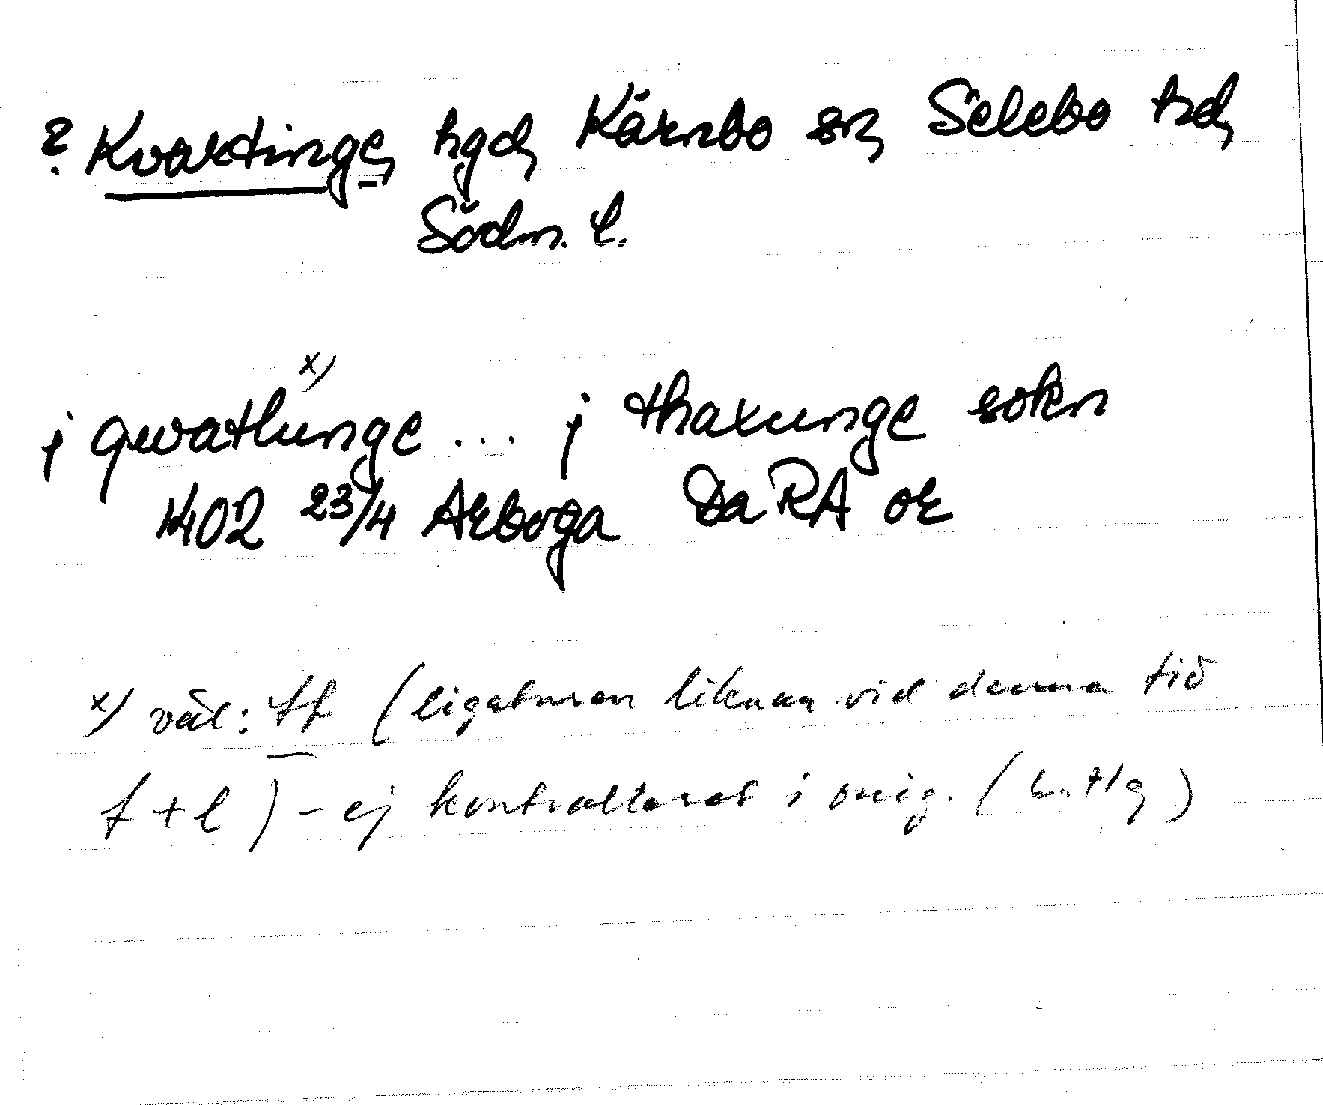 ? Kvartinge hgd, Kärnbo sn, Selebo hd,
Södm. l.
x)
j qwatlunge ... j thaxunge sokn
1402 23/4 Arboga Da RA or
x) väl: tt (ligaturen liknar vid denna tid
t + l) - ej kontrollerat i orig. (